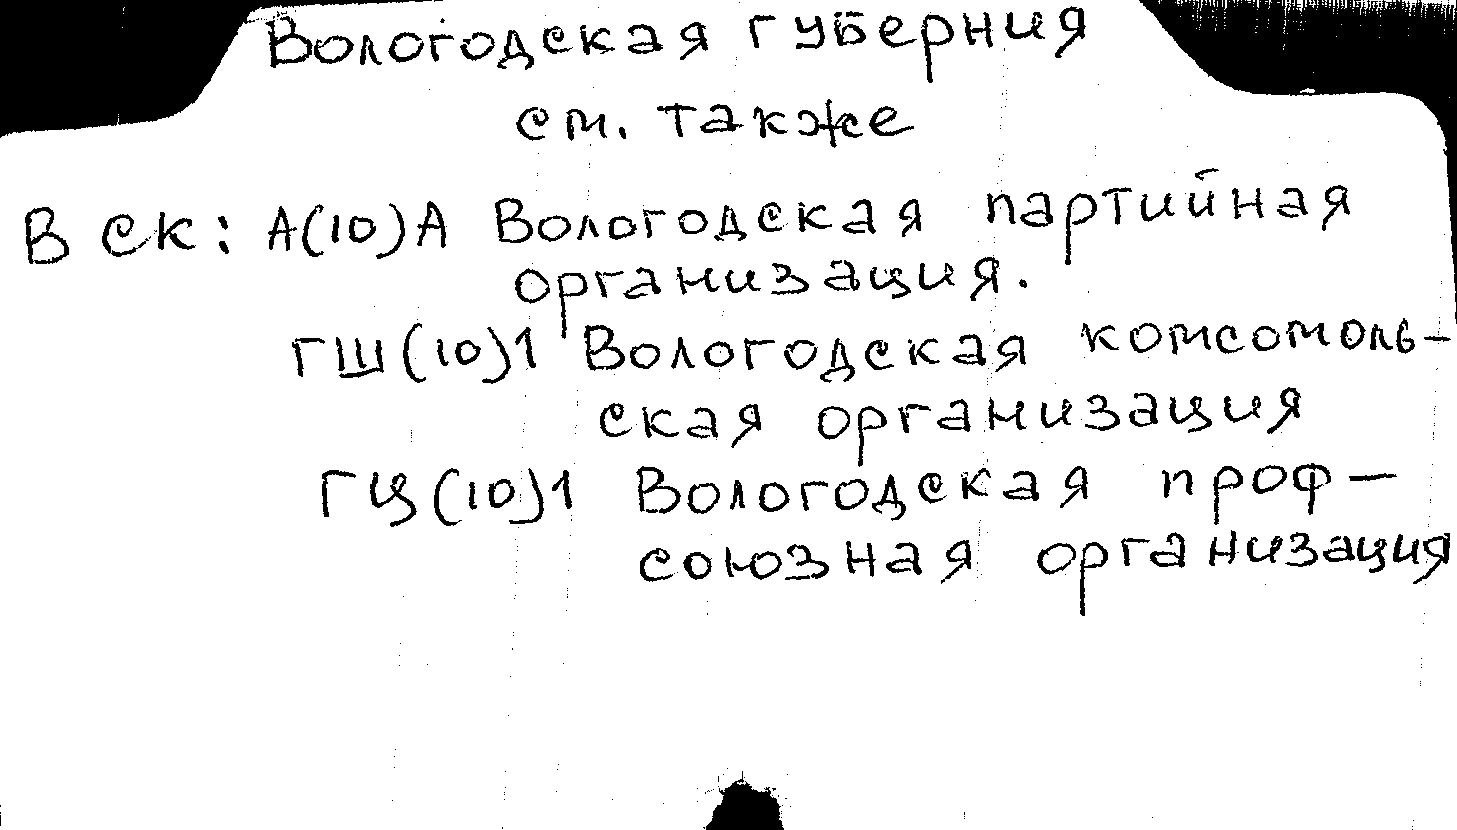 Вологодская губерния
см. также
В СК: А(10)А Вологодская партийная
организация.
ГШ(10)1 Вологодская комсомоль-
ская организация
ГЦ(10)1 Вологодская проф-
союзная организация